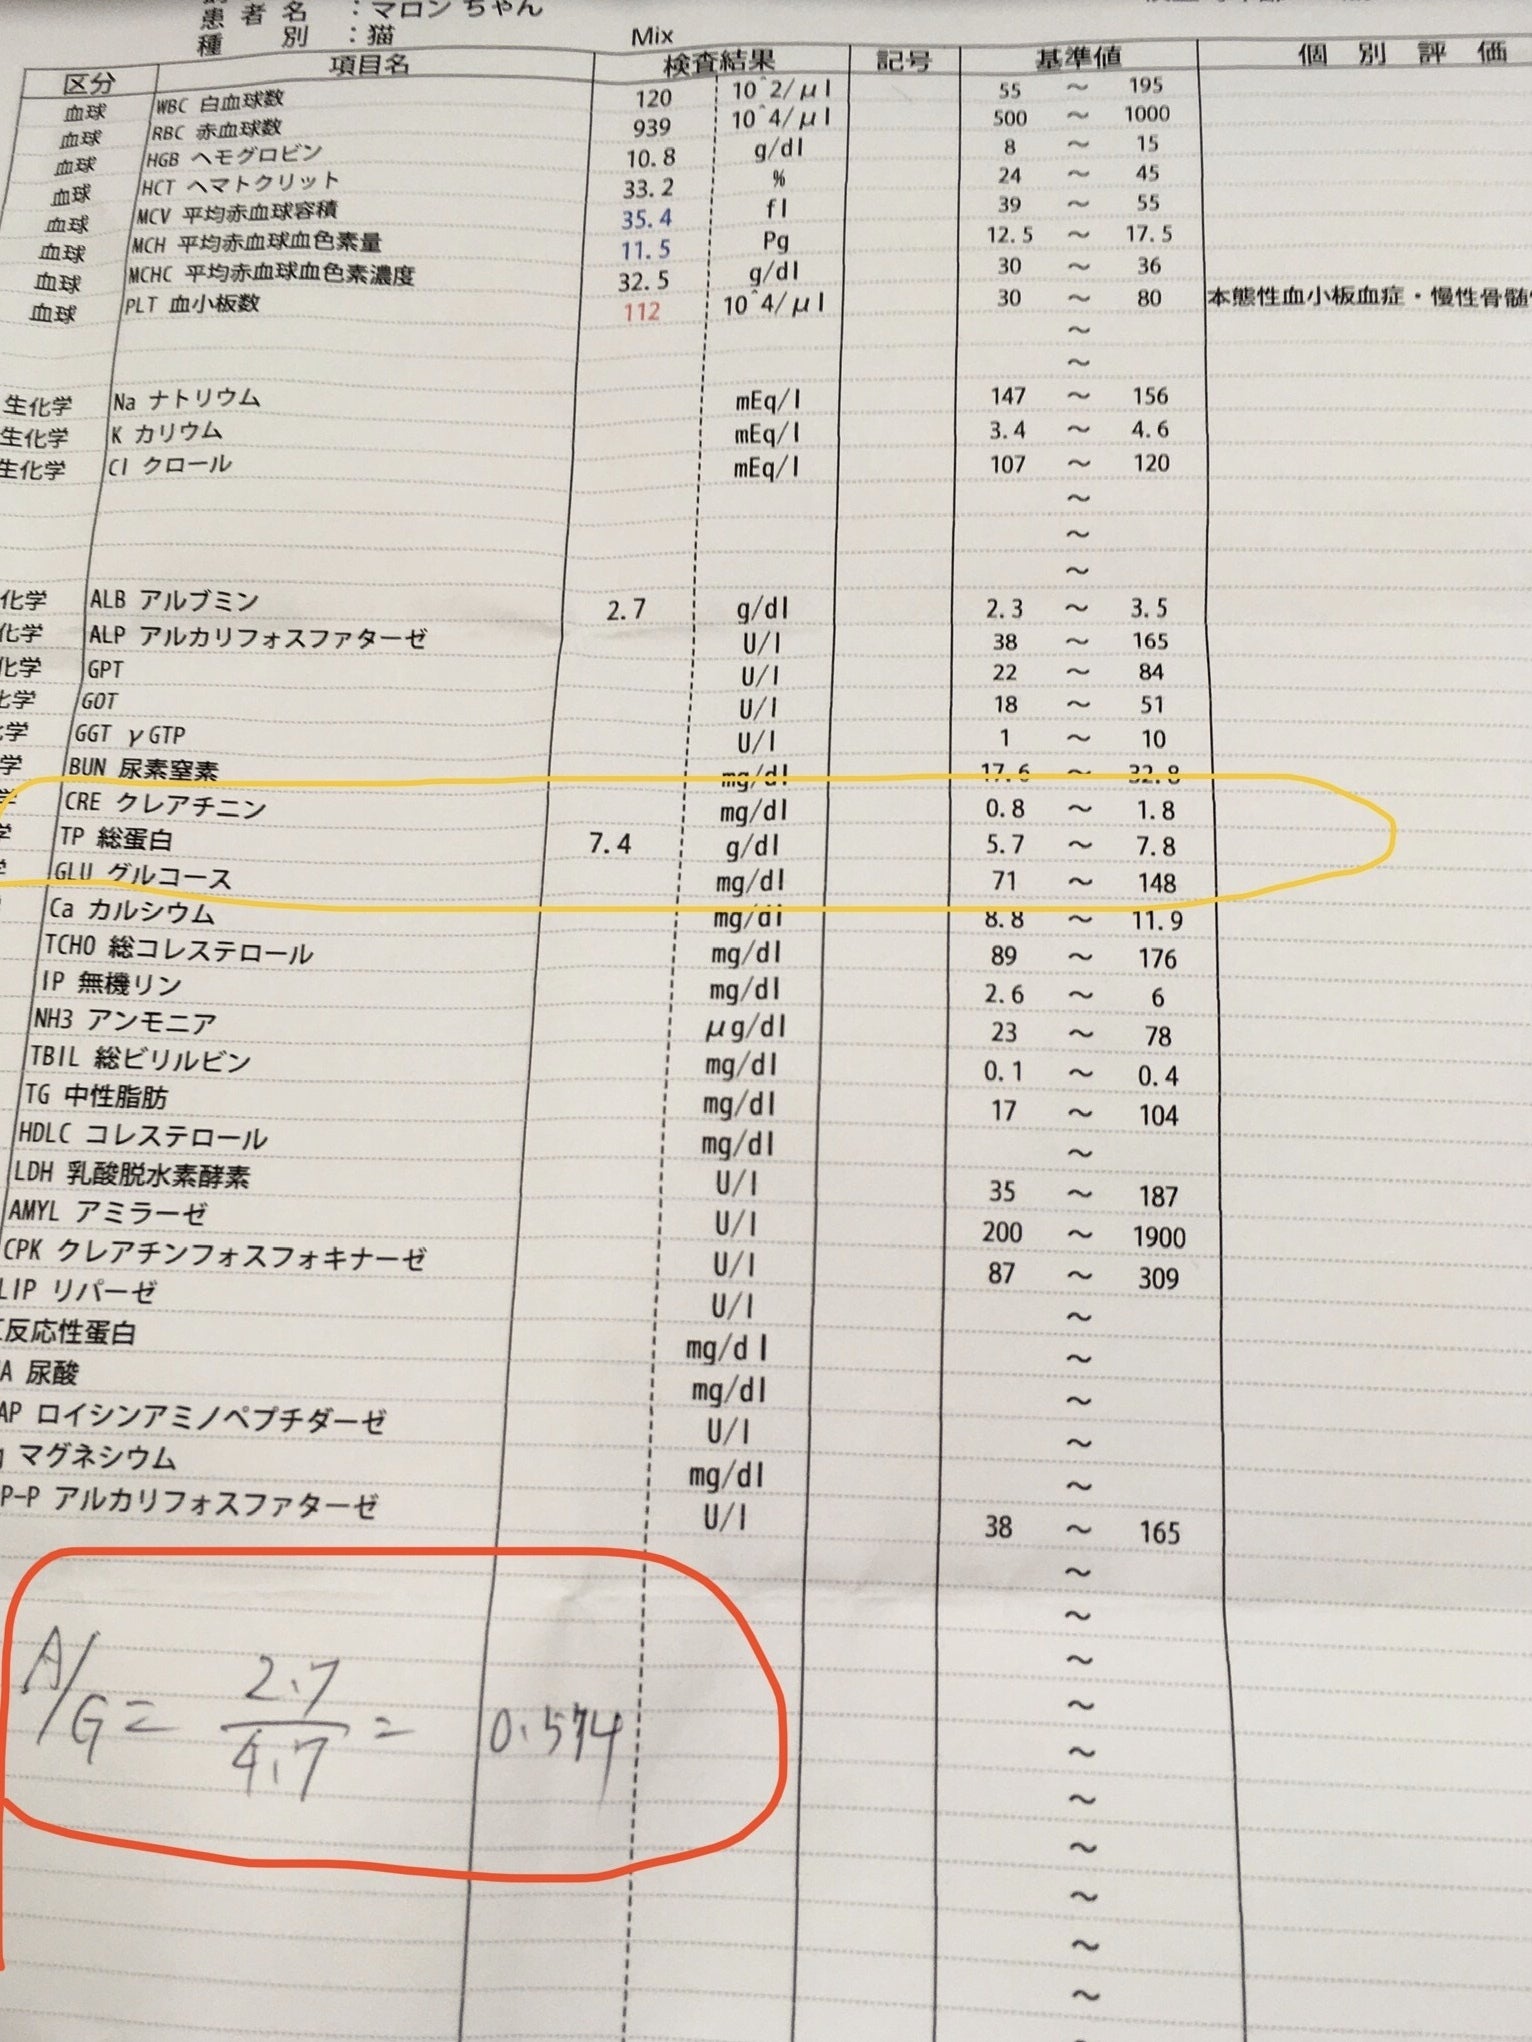 患者名 ：マロン ちゃん
種 別 ：猫 Mix
区分 項目名 検査結果 記号 基準値 個別評価
血球 WBC 白血球数 120 10^2/μl 55 ～ 195
血球 RBC 赤血球数 939 10^4/μl 500 ～ 1000
血球 HGB ヘモグロビン 10.8 g/dl 8 ～ 15
血球 HCT ヘマトクリット 33.2 % 24 ～ 45
血球 MCV 平均赤血球容積 35.4 fl 39 ～ 55
血球 MCH 平均赤血球血色素量 11.5 Pg 12.5 ～ 17.5
血球 MCHC 平均赤血球血色素濃度 32.5 g/dl 30 ～ 36
血球 PLT 血小板数 112 10^4/μl 30 ～ 80 本態性血小板血症・慢性骨髄
～
～
生化学 Na ナトリウム mEq/l 147 ～ 156
生化学 K カリウム mEq/l 3.4 ～ 4.6
生化学 Cl クロール mEq/l 107 ～ 120
～
～
～
化学 ALB アルブミン 2.7 g/dl 2.3 ～ 3.5
化学 ALP アルカリフォスファターゼ U/l 38 ～ 165
化学 GPT U/l 22 ～ 84
化学 GOT U/l 18 ～ 51
学 GGT γGTP U/l 1 ～ 10
学 BUN 尿素窒素 mg/dl 17.6 ～ 32.8
学 CRE クレアチニン mg/dl 0.8 ～ 1.8
学 TP 総蛋白 7.4 g/dl 5.7 ～ 7.8
学 GLU グルコース mg/dl 71 ～ 148
Ca カルシウム mg/dl 8.8 ～ 11.9
TCHO 総コレステロール mg/dl 89 ～ 176
IP 無機リン mg/dl 2.6 ～ 6
NH3 アンモニア μg/dl 23 ～ 78
TBIL 総ビリルビン mg/dl 0.1 ～ 0.4
TG 中性脂肪 mg/dl 17 ～ 104
HDLC コレステロール mg/dl ～
LDH 乳酸脱水素酵素 U/l 35 ～ 187
AMYL アミラーゼ U/l 200 ～ 1900
CPK クレアチンフォスフォキナーゼ U/l 87 ～ 309
LIP リパーゼ U/l ～
反応性蛋白 mg/dl ～
A 尿酸 mg/dl ～
AP ロイシンアミノペプチダーゼ U/l ～
マグネシウム mg/dl ～
P-P アルカリフォスファターゼ U/l 38 ～ 165
～
～
～
～
～
～
～
～
～
～
A/G = 2.7/4.7 = 0.574